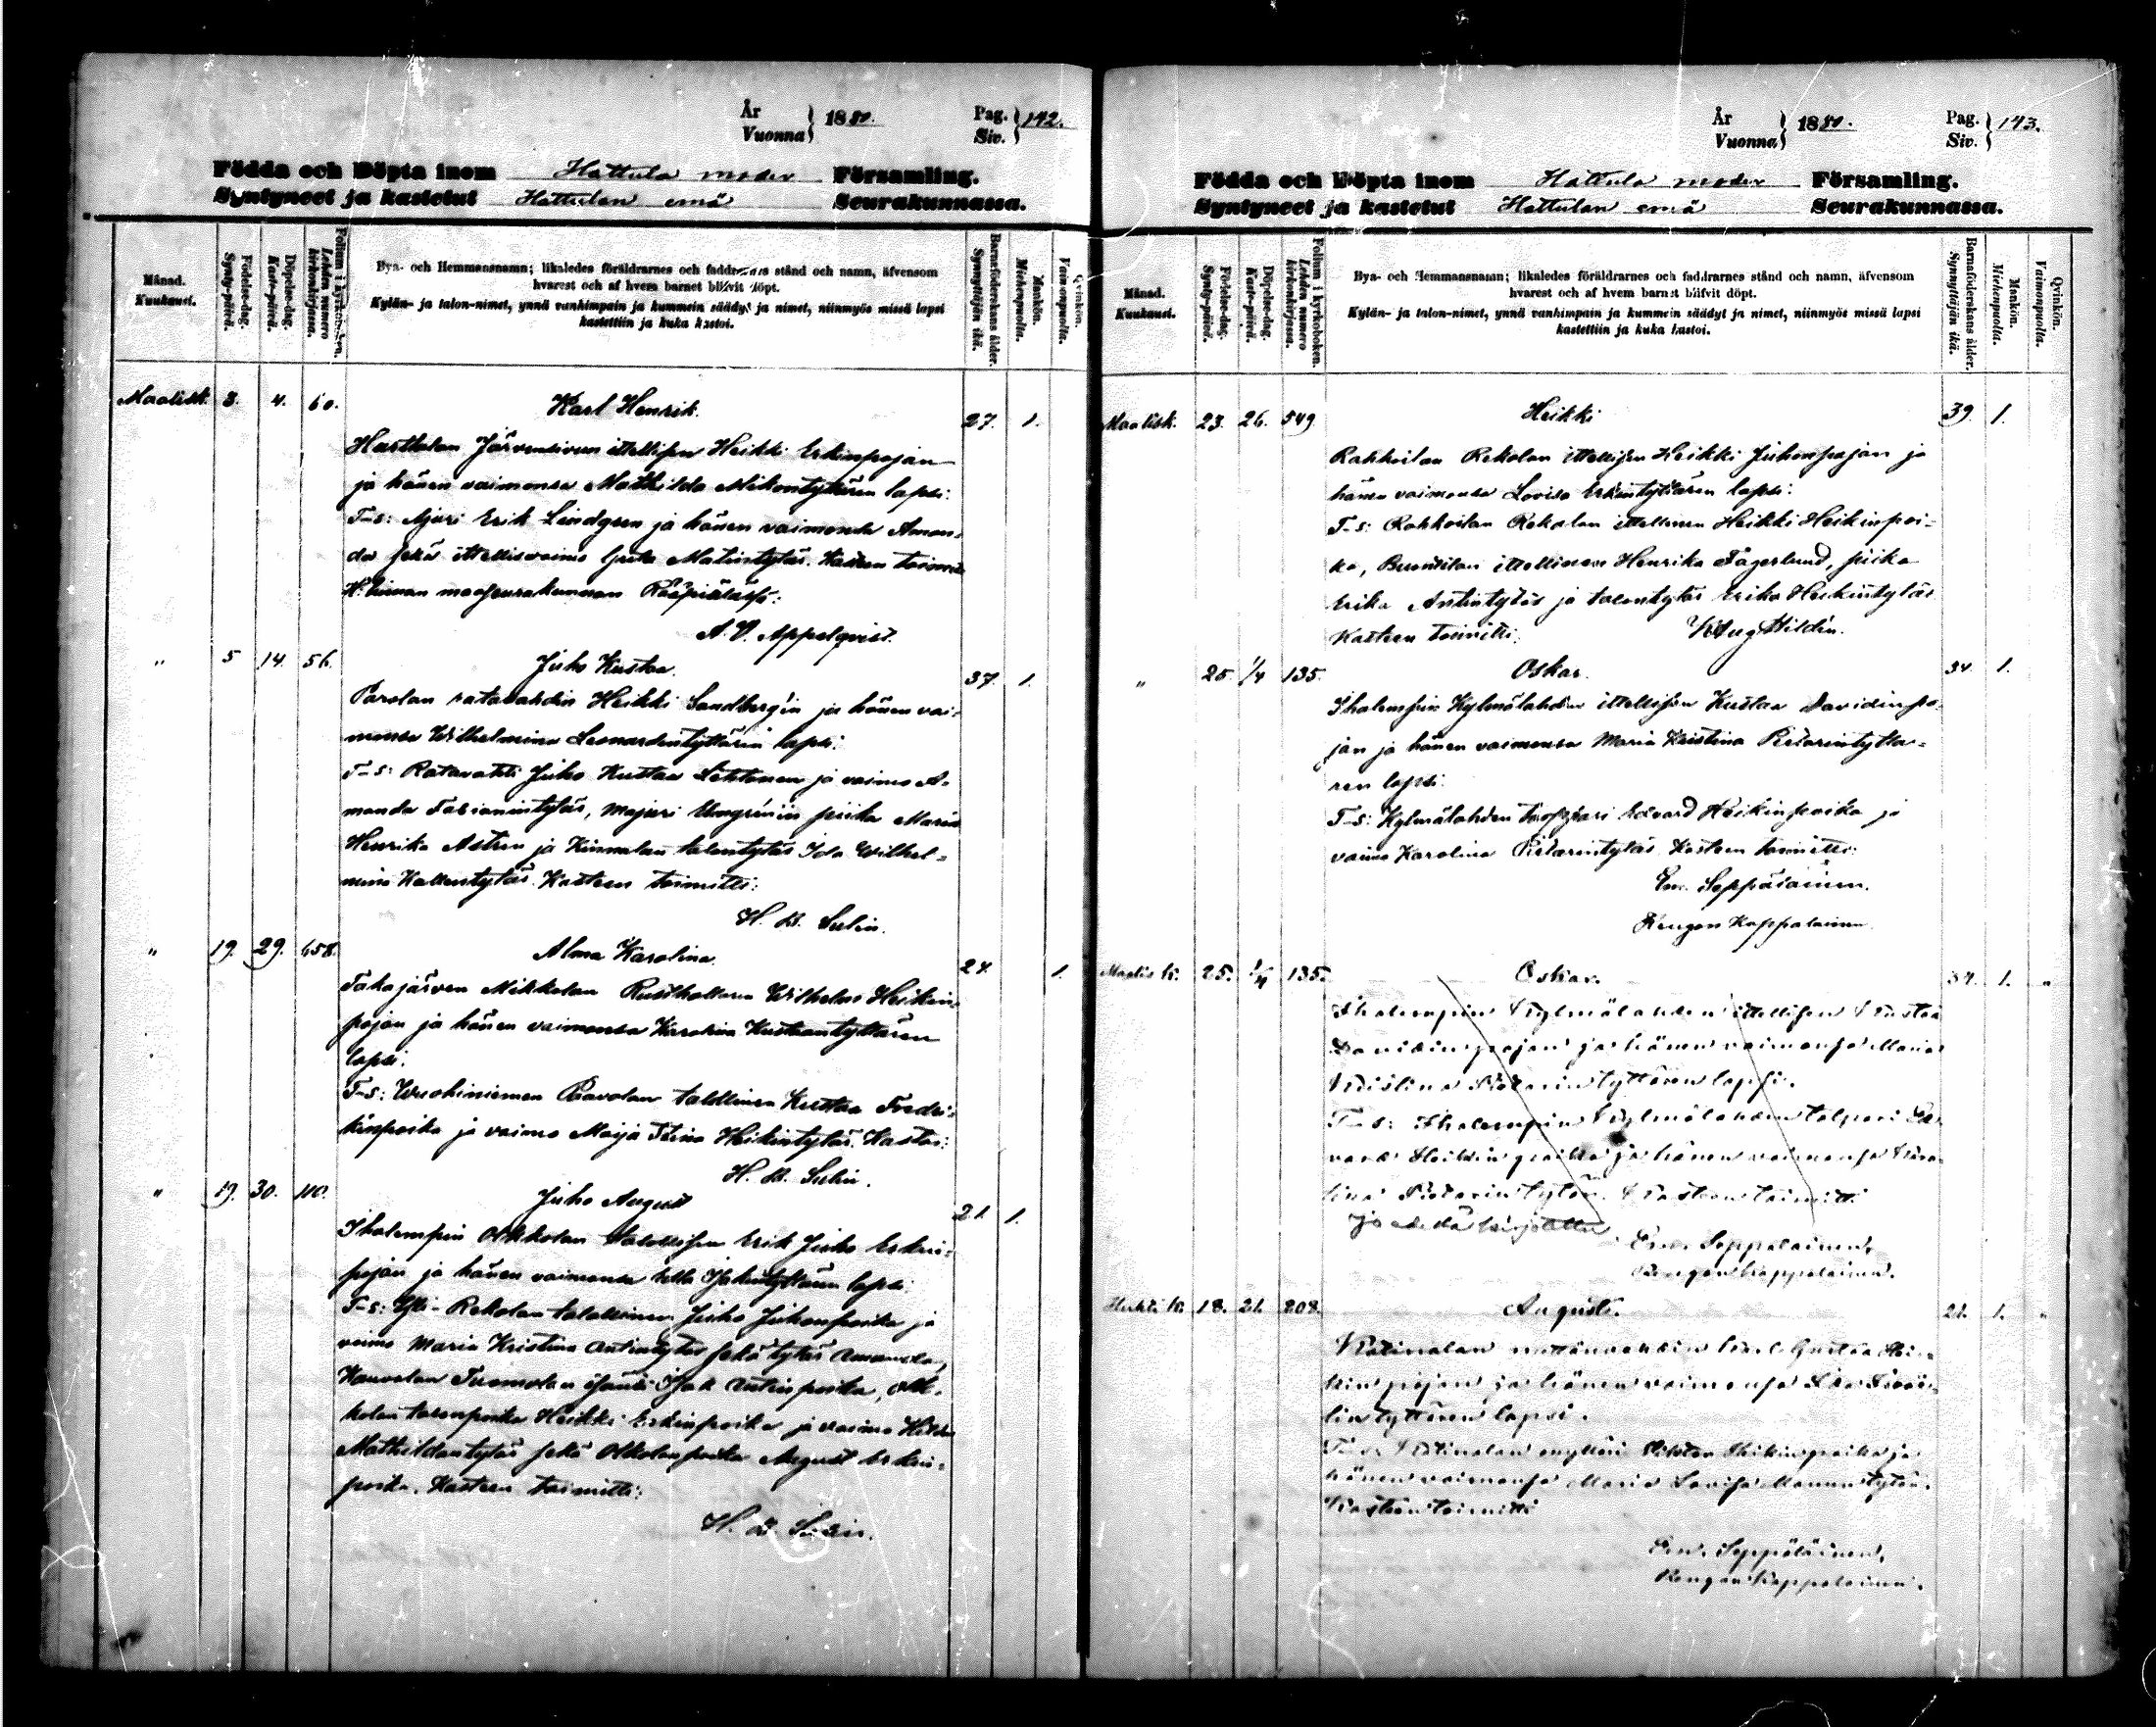 År
Vuonna } 1880.
Pag.
Siv. } 142.
Födda och Döpta inom Hattula moder Församling.
Syntyneet ja kastetut Hattulan emä Seurakunnassa.
Månad.
Kuukausi.
Födelse-dag.
Synty-päivä.
Döpelse-dag.
Kaste-päivä.
Folium i kyrkoboken.
Lehden numero kirkonkirjassa.
Bya- och Hemmansnamn; likaledes föräldrarnes och faddrarnes stånd och namn, äfvensom
hvarest och af hvem barnet blifvit döpt.
Kylän- ja talon-nimet, ynnä vanhimpain ja kummein säädyt ja nimet, niinmyös missä lapsi
kastettiin ja kuka kastoi.
Barnaföderskans ålder.
Synnyttäjän ikä.
Mankön.
Miehenpuolta.
Qvinkön.
Vaimonpuolta.
Maalisk. 3. 4. 60. Karl Henrik. 27. 1.
Järvensivun ittellisen Heikki Erkinpojan
ja hänen vaimonsa Mathilda Mikontyttären lapsi:
T-s: Ajuri Erik Lindgren ja hänen vaimonsa Aman-
da sekä ittellisvaimo Greta Matintytär. Kasteen toimitti
H:linnan maaseurakunnan
A. V. Appelqvist.
" 5 14. 56. Juho Kustaa. 37. 1.
Parolan ratavahdin Heikki Sandberg'in ja hänen vai-
monsa Wilhelmina Leonardintyttären lapsi:
T-s: Ratavahti Juho Kustaa Lehtonen ja vaimo A-
manda Fabianintytär, Majuri piika Maria
Henrika Astren ja talontytär Ida Wilhel-
mina Kallentytär. Kasteen toimitti:
H. B. Sulin.
" 19. 29. 658. Alma Karolina. 24. 1.
Takajärven Mikkolan Rusthollarin Wilhelm Heikin-
pojan ja hänen vaimonsa Karolina Kustaantyttären
lapsi:
T-s: Wuohiniemen Paavolan talollinen Kustaa Fredri-
kinpoika ja vaimo Maija Stina Heikintytär. Kastoi:
H. B. Sulin.
" 19. 30. 110. Juho August 21. 1.
Ihalempin Olkkolan talollisen Erik Juho Erkin-
pojan ja hänen vaimonsa lapsi:
T-s: Yli-Rekolan talollinen Juho Juhonpoika ja
vaimo Maria Kristina Antintytär sekä tytär Amanda,
Tuomolan isäntä Isak Antinpoika, Olk-
kolan talonpoika Heikki Erkinpoika ja vaimo Hilda
sekä August Erkin-
poika. Kasteen toimitti:
H. B. Sulin.
År
Vuonna } 1880.
Pag.
Siv. } 143.
Födda och Döpta inom Hattula moder Församling.
Syntyneet ja kastetut Hattulan emä Seurakunnassa.
Månad.
Kuukausi.
Födelse-dag.
Synty-päivä.
Döpelse-dag.
Kaste-päivä.
Folium i kyrkoboken.
Lehden numero kirkonkirjassa.
Bya- och Hemmansnamn; likaledes föräldrarnes och faddrarnes stånd och namn, äfvensom
hvarest och af hvem barnet blifvit döpt.
Kylän- ja talon-nimet, ynnä vanhimpain ja kummein säädyt ja nimet, niinmyös missä lapsi
kastettiin ja kuka kastoi.
Barnaföderskans ålder.
Synnyttäjän ikä.
Mankön.
Miehenpuolta.
Qvinkön.
Vaimonpuolta.
Maalisk. 23. 26. 549. Heikki 39. 1.
Rahkoilan Rekolan ittellisen Heikki Juhonpojan ja
hänen vaimonsa Lovisa Erkintyttären lapsi:
T-s: Rahkoilan Rekolan ittellinen Heikki Heikinpoi-
ka, ittellinen Henrika Fagerlund, piika
Erika Antintytär ja talontytär Erika Heikintytär
Kasteen toimitti: Aug. Hildén.
" 25. 1/4 135. Oskar. 34. 1.
Ihalempin Kylmälahden ittellisen Kustaa Davidinpo-
jan ja hänen vaimonsa Maria Kristina Pietarintyttä-
ren lapsi:
T-s: Kylmälahden torppari Edvard Heikinpoika ja
vaimo Karolina Pietarintytär. Kasteen toimitti:
Em. Seppälainen.
Rengon Kappalainen.
Maalis k. 25. 1/4 135. Oskar. 34. 1. "
Ihalempin Kylmälahden ittellisen Kustaa
Davidin pojan ja hänen vaimonsa Maria
Kristina Pietarin tyttären lapsi.
T-s: Ihalempin Kylmälahden torpari Ed-
vard Heikinpoika ja hänen vaimonsa Karo-
lina Pietarin tytär. Kasteen toimitti
jo edellä kirjoitettu
Em. Seppäläinen,
Rengon Kappalainen.
Huhti k. 18. 21. 208. August. 21. 1. "
Karl Gustaa Hei-
kin pojan ja hänen vaimonsa
lin tyttären lapsi.
T-s: Heikinpoika ja
hänen vaimonsa Maria Lovisa tytär.
Kasteen toimitti
Em. Seppäläinen,
Rengon Kappalainen.